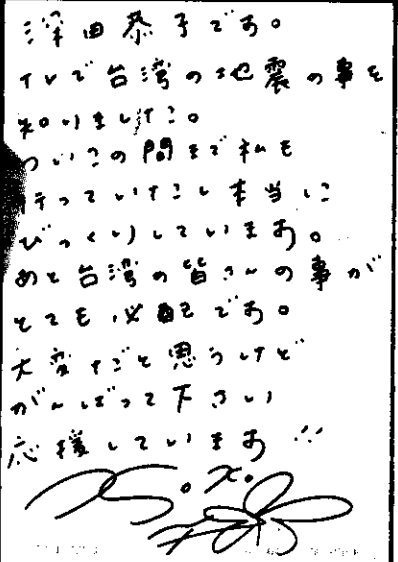 深田恭子です。
TVで台湾の地震の事を
知りました。
ついこの間まで私も
行っていたし本当に
びっくりしています。
あと台湾の皆さんの事が
とても心配です。
大変だと思うけど
がんばって下さい
応援しています